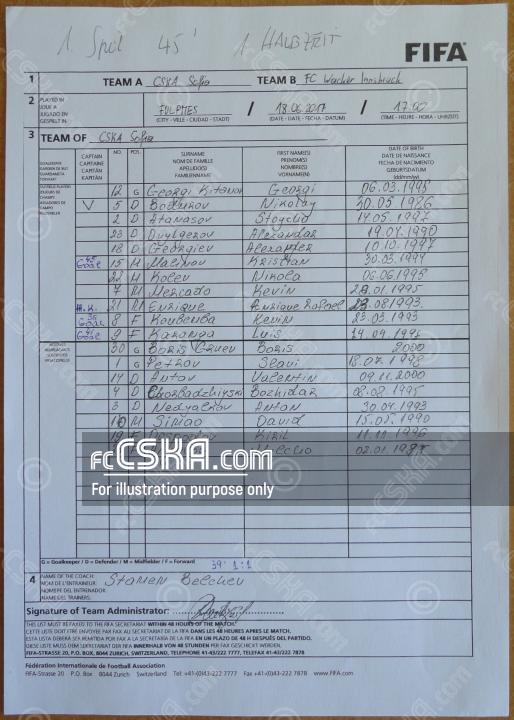 1. Spiel 45' 1. HALBZEIT
FIFA
1 TEAM A CSKA Sofia TEAM B FC Wacker Innsbruck
2 PLAYED IN JOUÉ A JUGADO EN GESPIELT IN FULPMES / 18.06.2017 / 17.00
(CITY - VILLE - CIUDAD - STADT) (DATE - DATE - FECHA - DATUM) (TIME - HEURE - HORA - UHRZEIT)
3 TEAM OF CSKA Sofia
CAPTAIN CAPITAINE CAPITÁN KAPITÄN NO. POS. SURNAME NOM DE FAMILLE APELLIDO(S) FAMILIENNAME FIRST NAME(S) PRÉNOM(S) NOMBRE(S) VORNAME(N) DATE OF BIRTH DATE DE NAISSANCE FECHA DE NACIMIENTO GEBURTSDATUM (dd/mm/yy)
12 G Georgi Kitanov Georgi 06.03.1995
V 5 D Bodurov Nikolay 30.05.1986
2 D Atanasov Stoycho 14.05.1997
23 D Dyulgerov Alexandar 19.04.1990
18 D Georgiev Alexander 10.10.1997
Goal 15 M Malinov Kristian 30.03.1994
22 M Kolev Nikola 06.06.1995
7 M Mercado Kevin 28.01.1995
21 M Enrique Enrique Rafael 23.08.1993
Goal 8 F Koubemba Kevin 23.03.1993
Goal 9 F Karanga Luis 14.04.1991
30 G Boris Gruev Boris 2000
1 G Petkov Slavi 18.07.1998
14 D Antov Valentin 09.11.2000
4 D Chorbadzhiyski Bozhidar 08.08.1995
3 D Nedyalkov Anton 30.04.1993
10 M Simao David 15.05.1990
19 F Kiril 11.11.1996
02.01.1987
fcCSKA.com
For illustration purpose only
G = Goalkeeper / D = Defender / M = Midfielder / F = Forward 39' 1:1
4 NAME OF THE COACH: NOM DE L'ENTRAINEUR: NOMBRE DEL ENTRENADOR: NAME DES TRAINERS: Stamen Belchev
Signature of Team Administrator:
THIS LIST MUST BE FAXED TO THE FIFA SECRETARIAT WITHIN 48 HOURS OF THE MATCH.
CETTE LISTE DOIT ETRE ENVOYEE PAR FAX AU SECRETARIAT DE LA FIFA DANS LES 48 HEURES APRES LE MATCH.
ESTA LISTA DEBERA SER REMITIDA POR FAX A LA SECRETARIA DE LA FIFA EN UN PLAZO DE 48 H DESPUÉS DEL PARTIDO.
DIESE LISTE MUSS DEM SEKRETARIAT DER FIFA INNERHALB VON 48 STUNDEN PER FAX GESCHICKT WERDEN.
FIFA-STRASSE 20, P.O. BOX, 8044 ZURICH, SWITZERLAND, TELEPHONE 41-43/222 7777, TELEFAX 41-43/222 7878
Fédération Internationale de Football Association
FIFA-Strasse 20 P.O. Box 8044 Zurich Switzerland Tel: +41-(0)43-222 7777 Fax: +41-(0)43-222 7878 www.FIFA.com